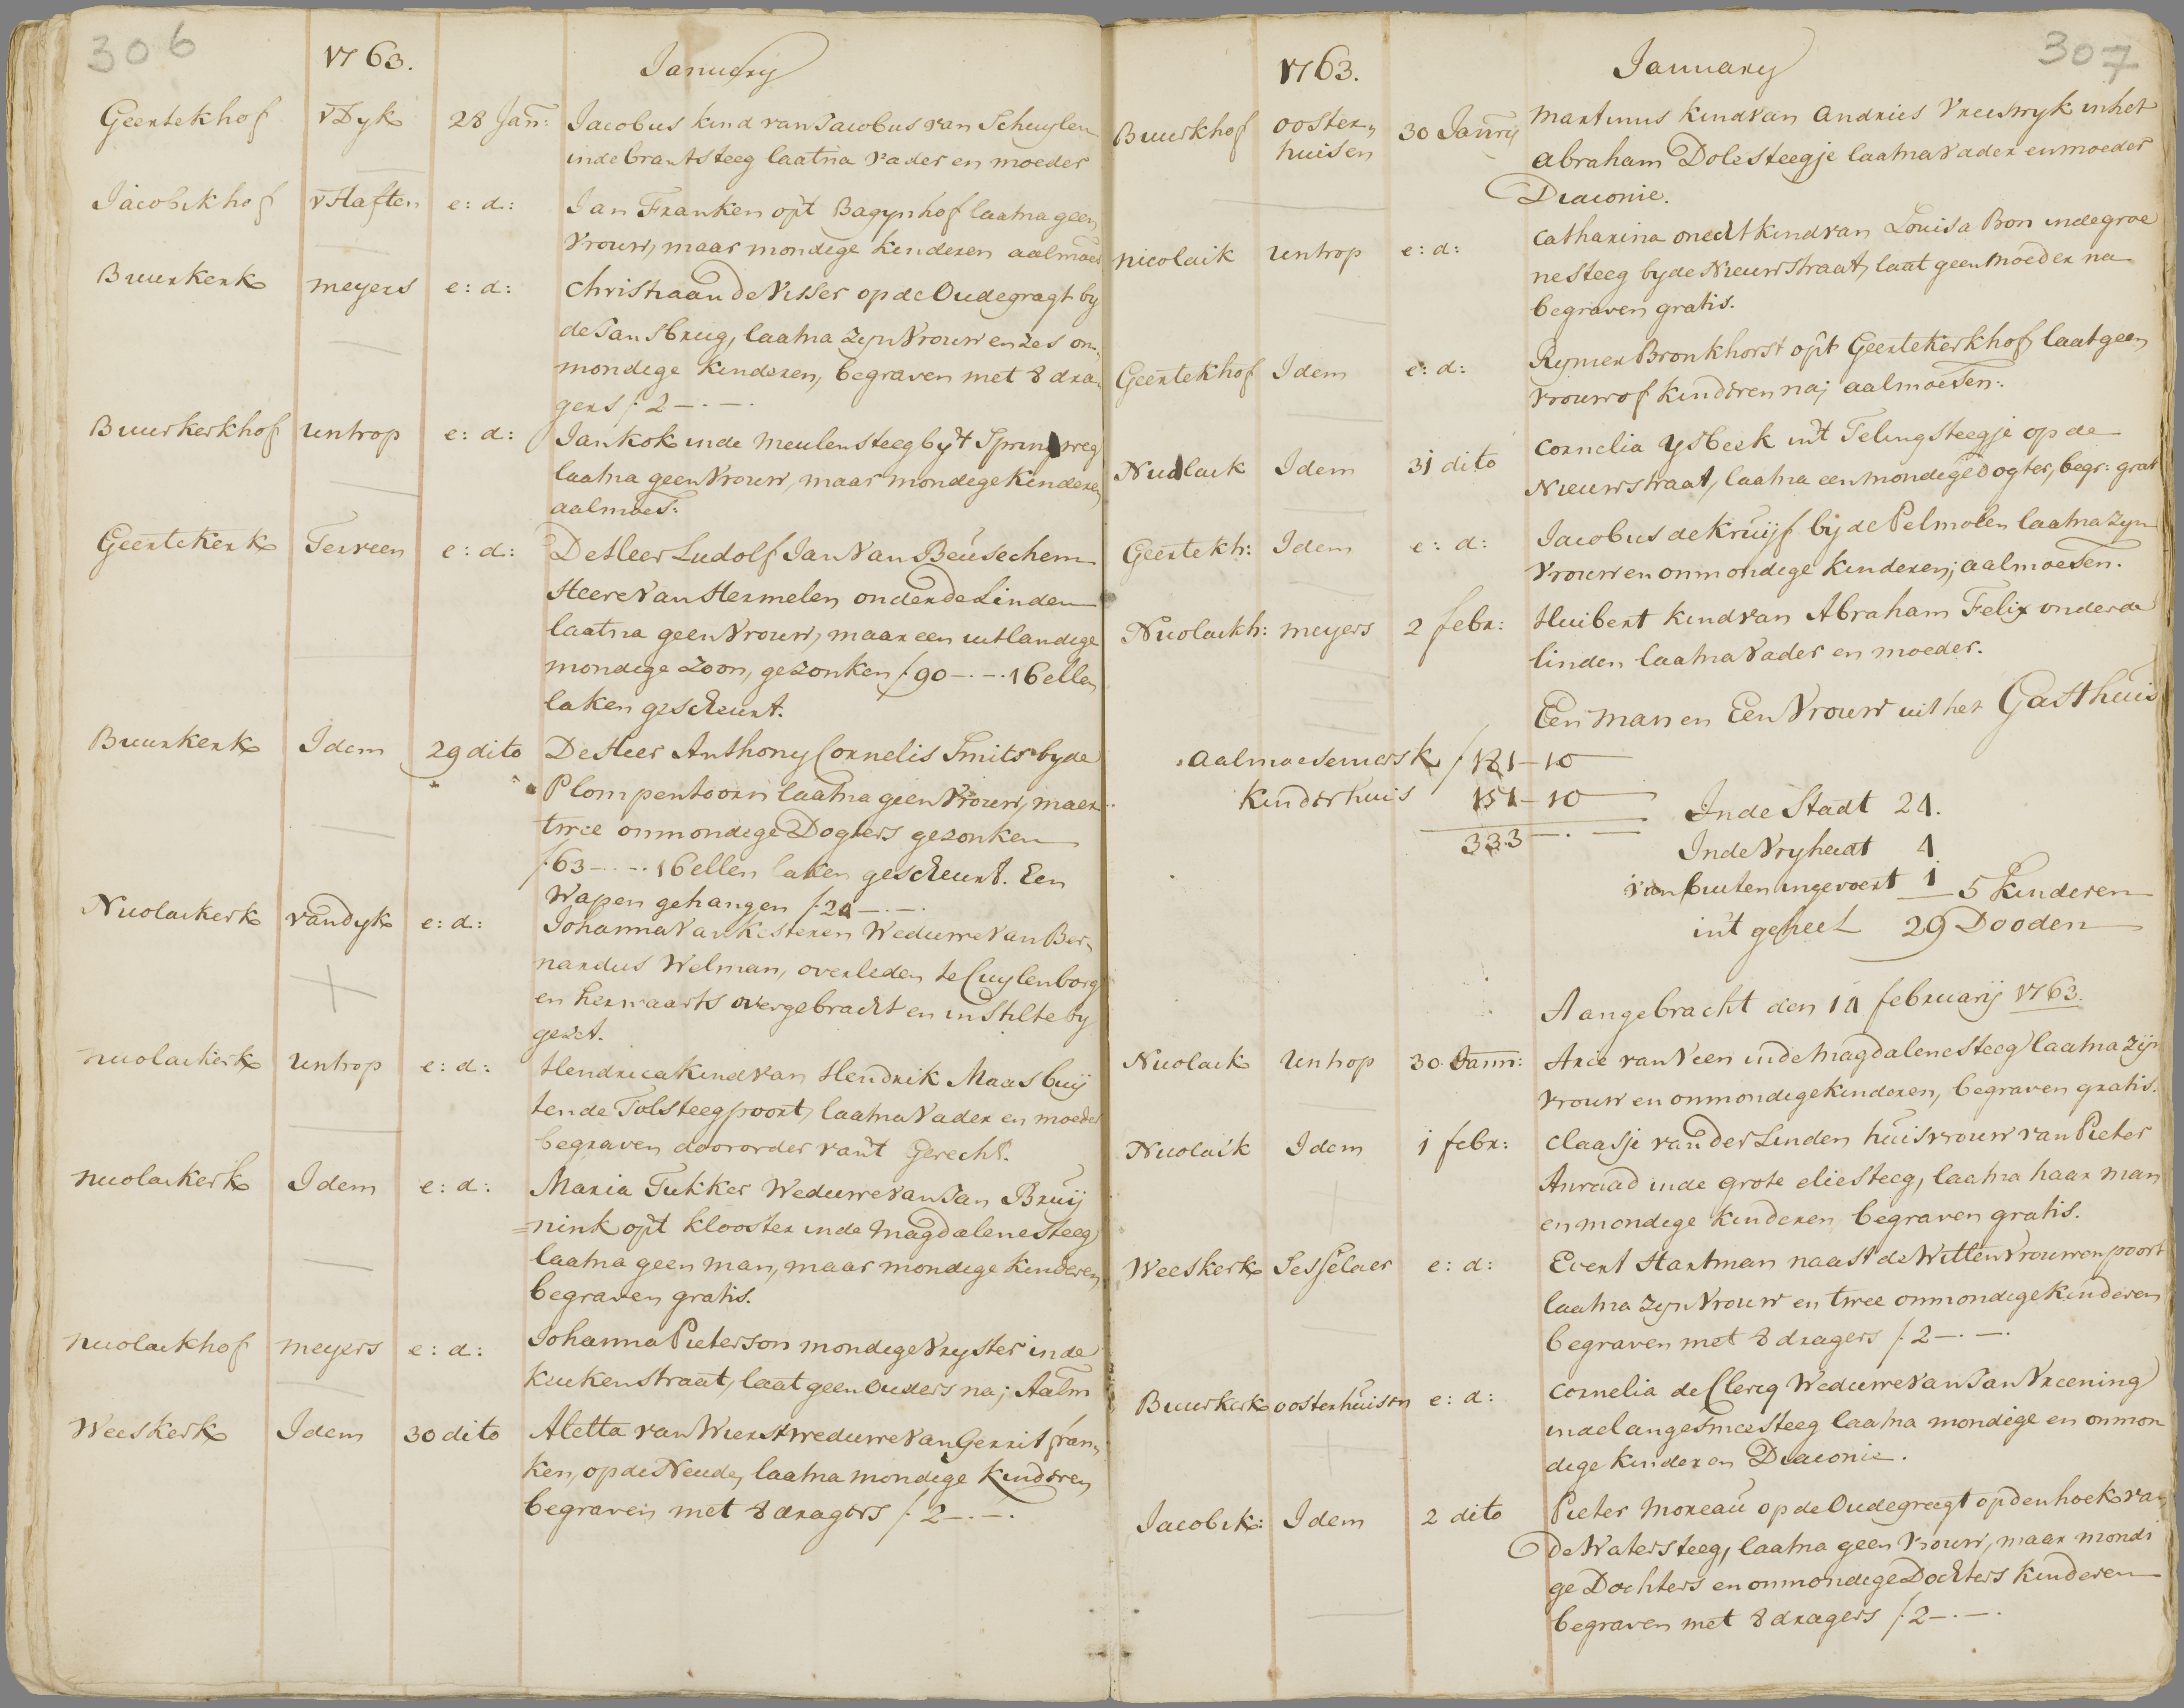 306
1763. January
Geertekhof vDyk 28 Jan: Jacobus kind van Jacobus van Schuylen
inde brantsteeg laatna vader en moeder
Jacobikhof vHaften e: d: Jan Franken opt Bagynhof laatna geen
Vrouw, maar mondige kinderen aalmoes
Buurkerk meyers e: d: Christiaan de Visser op de Oudegragt by
de Jansbrug, laatna zyn Vrouw en zes on„
mondige kinderen, begraven met 8 dra„
gers f. 2 —.—.
Buurkerkhof Untrop e: d: Jan Kok inde meulensteeg by't Springweg
laatna geen Vrouw, maar mondige kinderen
aalmoes:
Geertekerk Terveen e: d: De Heer Ludolf Jan Van Beusechem
Heere Van Hermelen onder de Linden
laatna geen Vrouw, maar een uitlandige
mondige zoon, gezonken f. 90 —.—. 16 ellen
laken gescheurt.
Buurkerk Idem 29 dito De Heer Anthony Cornelis Smits by de
Plompentoorn laatna geen Vrouw, maer
twee onmondige Dogters gezonken
f. 63 —.—. 16 ellen laken gescheurt. Een
Wapen gehangen f. 24 —.—.
Nicolaikerk van Dyk e: d: Johanna Van Kesteren Weduwe Van Ber„
nardus Welman, overleden te Cuylenborg
en herwaarts overgebracht en in Stilte by
gezet.
Nicolaikerk Untrop e: d: Hendrica kind van Hendrik Maas buij
ten de Tolsteegpoort, laatna Vader en moeder
begraven door order van't Gerecht.
Nicolaikerk Idem e: d: Maria Tukker Weduwe Van Jan Bruij
=nink opt klooster inde Magdalenesteeg
laatna geen man, maar mondige kinderen,
begraven gratis.
Nicolaikhof meyers e: d: Johanna Pieterson mondige Vryster in de
Kuikenstraat, laat geen Ouders na; Aalm
Weeskerk Idem 30 dito Aletta van Wierst weduwe Van Gerrit fran„
ken, op de Neude, laatna mondige kinderen,
begraven met 8 dragers f. 2 —.—.
307
1763. January
Buurkhof ooster„ huisen 30 Janrij martinus kind van Andries Vreeswyk in het
Abraham Dolesteegje laatna Vader en moeder
Diaconie.
nicolaik Untrop e: d: Catharina onecht kind van Louisa Bon inde groe
nesteeg by de Nieuwstraat, laat geen moeder na
begraven gratis.
Geertekhof Idem e: d: Rymer Bronkhorst op't Geertekerkhof, laat geen
vrouw of kinderen na; aalmoesen.
Nicolaik Idem 31 dito Cornelia Ysbeek in't Telingsteegje op de
Nieuwstraat, laatna een mondige Dogter, begr: grat
Geertekh: Idem e: d: Jacobus de Kruijf bij de Pelmolen laatna zyn
Vrouw en onmondige kinderen; aalmoesen.
Nicolaikh: meyers 2 febr: Huibert kind van Abraham Felix onder de
linden laatna Vader en moeder.
Een man en Een Vrouw uit het Gasthuis
Aalmoeseniersk f 181—10
Kinderhuis 151—10
333 —.—
Inde Stadt 24.
Inde Vryheidt 4
van buiten ingevoert 1 5 kinderen
in't geheel 29 Dooden
Aangebracht den 14 februarij 1763.
Nicolaik Untrop 30 Jann: Arie van Veen inde Magdalenesteeg laatna zijn
vrouw en onmondige kinderen, begraven gratis.
Nicolaik Idem 1 febr: Claasje van der Linden huisvrouw van Pieter
Anraad inde grote eliesteeg, laatna haar man
en mondige kinderen begraven gratis.
Weeskerk Tesselaer e: d: Evert Hartman naast de Wittevrouwenpoort
laatna zyn Vrouw en twee onmondige kinderen
begraven met 8 dragers f. 2 —.—.
Buurkerk oosterhuisen e: d: Cornelia de Clercq Weduwe Van Jan Vreening
inde lange smeesteeg laatna mondige en onmon
dige kinderen Diaconie.
Jacobik: Idem 2 dito Pieter Moreau op de Oudegragt op den hoek van
de Watersteeg, laatna geen Vrouw, maar mondi
ge Dochters en onmondige Dochters kinderen
begraven met 8 dragers f. 2 —.—.